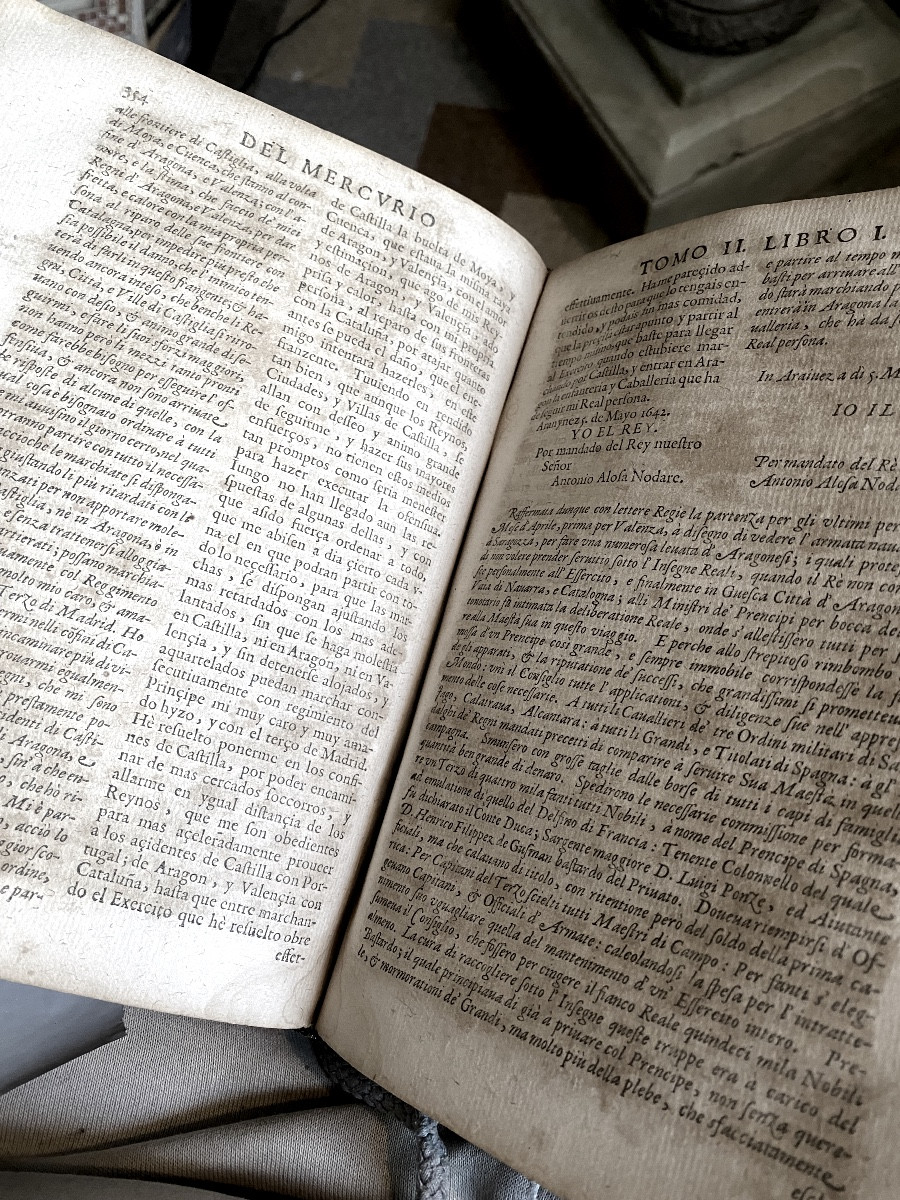 354
DEL MERCVRIO
alle frontiere di Castiglia, alla volta
di Mora, e Cuenca, che stanno al con-
fine d'Aragona, e Valenza; con l'a-
more, e la stima, che faccio de' miei
Regni d'Aragona, e Valenza, per dar
fretta, e calore con la mia propria per-
sona al riparo delle sue frontiere, con
Catalugna, per impedire più presto, che
sia possibile il danno, che l'inimico ten-
terà di farli in questo frangente, & ha-
uendo ancora inteso, che benche li Re-
gni, Città, e Ville di Castiglia si tro-
uano con desio, & animo grande di se-
guirmi, e fare li suoi sforzi maggiori,
non hanno però li mezzi tanto pronti
come sarebbe bisogno per esseguire l'of-
fensiua, & ancora non sono arriuate
risposte di alcune di quelle, con la
qual cosa è bisognato ordinare à tutti
mi auuisino il giorno certo, nel qua-
tranno partire con tutto il necessa-
acciochè le marchiate si disponga-
giustando li più ritardati con le
nzati per non apportare mole-
astiglia, nè in Aragona, è in
e senza trattenersi alloggia-
uartierati; possano marchia-
uamente col Reggimento
molto mio caro, & ama-
Terzo di Madrid. Ho
rmi nelli cõfini di Ca-
ncaminare più di vi-
rouarmi egualmen-
gni, che mi sono
prestamente po-
identi di Casti-
di Aragona, e
, sin'a che en-
che hò ri-
Mi è par-
, acciò lo
ggior co-
ordine,
e par-
de Castilla la buelta de Mora, y
Cuenca, que estaua la misma raya
de Aragon, y Valençia, con el amor
y estimaçion, que hago de mis Rey
nos de Aragon, y Valençia, a dar
prisa y calor, hasta con mi propia
persona, al reparo de sus fronteras
con la Cataluña, por atajar quanto
antes se pueda el daño, que el ene
migo intentarà hazerles, en este
franzente. Tuuiendo entendido
tan bien, que aunque los Reynos,
Ciudades, y Villas de Castilla, se
allan con desseo y animo grande
de seguirme, y hazer sus mayores
esfuerços, no tienen estos medios
tan promptos como seria menester
para hazer executar la ofensiua.
Iungo no han llegado aun las re-
spuestas de algunas dellas, y con
que asido fuerça ordenar a todo,
que me abisen a dia çierto cada v-
na el en que podran partir con to-
do lo neceſſario, para que las mar-
chas, se dispongan ajustando los
mas retardados con los mas ade-
lantados, sin que se haga molestia
en Castilla, ni en Aragon, ni en Va-
lençia, y sin detenerse alojados, y
aquartelados puedan marchar con-
secutiuamente con regimiento del
Prinçipe mi muy caro y muy ama-
do hyzo, y con el terço de Madrid.
Hè resuelto ponerme en los confi-
nes de Castilla, por poder encami-
nar de mas cercados soccorros, y
allarme en ygual distançia de los
Reynos, que me son obedientes
para mas açeleradamente proueer
a los açidentes de Castilla con Por-
tugal; de Aragon, y Valençia con
Cataluña, hasta que entre marchan-
do el Exercito que hè resuelto obre
effet-
TOMO II. LIBRO I.
effettiuamente. Hame pareçido ad-
uertiros desto para que lo tengais en-
tendido, y podais sin mas comidad,
que la preçisa estar apunto, y partir al
tiempo mismo que baste para llegar
al Exercito quando estubiere mar-
chando por Castilla, y entrar en Ara-
gon la enfanteria y Caballeria que ha
de seguir mi Real persona.
Aranynez 5. de Mayo 1642.
YO EL REY.
Por mandado del Rey nuestro
Señor
Antonio Alosa Nodare.
e partire al tempo m
basti per arriuare all'
do starà marchiando p
entrerà in Aragona la
ualleria, che ha da s
Real persona.
In Araiuez a di 5. M
IO IL
Per mandato del Rè
Antonio Alesa Noda
Reffermata dunque con lettere Regie la partenza per gli vltimi per
Mese d'Aprile, prima per Valenza, à disegno di vedere l'armata nau
di Saraguzza, per fare una numerosa leuata d'Aragonesi; i quali prote
di non volere prender seruitio sotto l'Insegne Reali, quando il Re non co
se personalmente all'Essercito, e finalmente in Guesca Città d'Aragon
Vata di Nauarra, e Catalogna; alli Ministri de' Principi per bocca de
tonotario fù intimata la deliberatione Reale, onde s'allestissero tutti per s
re la Maestà sua in questo viaggio. E perche allo strepitoso rimbombo
mossa d'un Prencipe così grande, e sempre immobile corrispondesse la
degli apparati, & la riputatione de' successi, che grandissimi si promettea
Mondo: vnì il Consiglio tutte l'applicationi, & diligenze sue nell'appre
mento delle cose necessarie. A tutti li Cauallieri de' tre Ordini militari di Sa
Iago, Calatraua, Alcantara: à tutti li Grandi, e Titolati di Spagna: à gl'
ualghi de' Regni mandati precetti di comparire à seruire Sua Maestà, in quel
Campagna. Smunsero con grosse taglie dalle borse di tutti i capi di famigli
quantità ben grande di denaro. Spedirono le necessarie commissioni per forma-
re vn Terzo di quattro mila fanti tutti Nobili, à nome del Prencipe di Spagna,
ad emulatione di quello del Delfino di Francia: Tenente Colonnello del quale
fù dichiarato il Conte Duca; Sargente maggiore D. Luigi Ponze, ed Aiutante
D. Henrico Filippez de Gusman bastardo del Priuato. Doueuasi empirsi d'Of-
ficiali, ma che calauano di titolo, con ritentione però del soldo della prima ca-
rica: Per Capitani del Terzo scielti tutti Maestri di Campo: Per fanti s'eleg-
geuano Capitani, & Officiali d'Armate: calcolandosi la spesa per l'intratte-
nimento suo vguagliare quella del mantenimento d'vn' Essercito intero. Pre-
sumeua il Consiglio, che fossero per cingere il fianco Reale quindeci mila Nobili
almeno. La cura di raccogliere sotto l'Insegne queste truppe era à carico del
Bastardo; il quale principiaua di già à priuare col Prencipe, non senza quere-
le, & mormorationi de' Grandi, ma molto più della plebe, che sfacciatamente